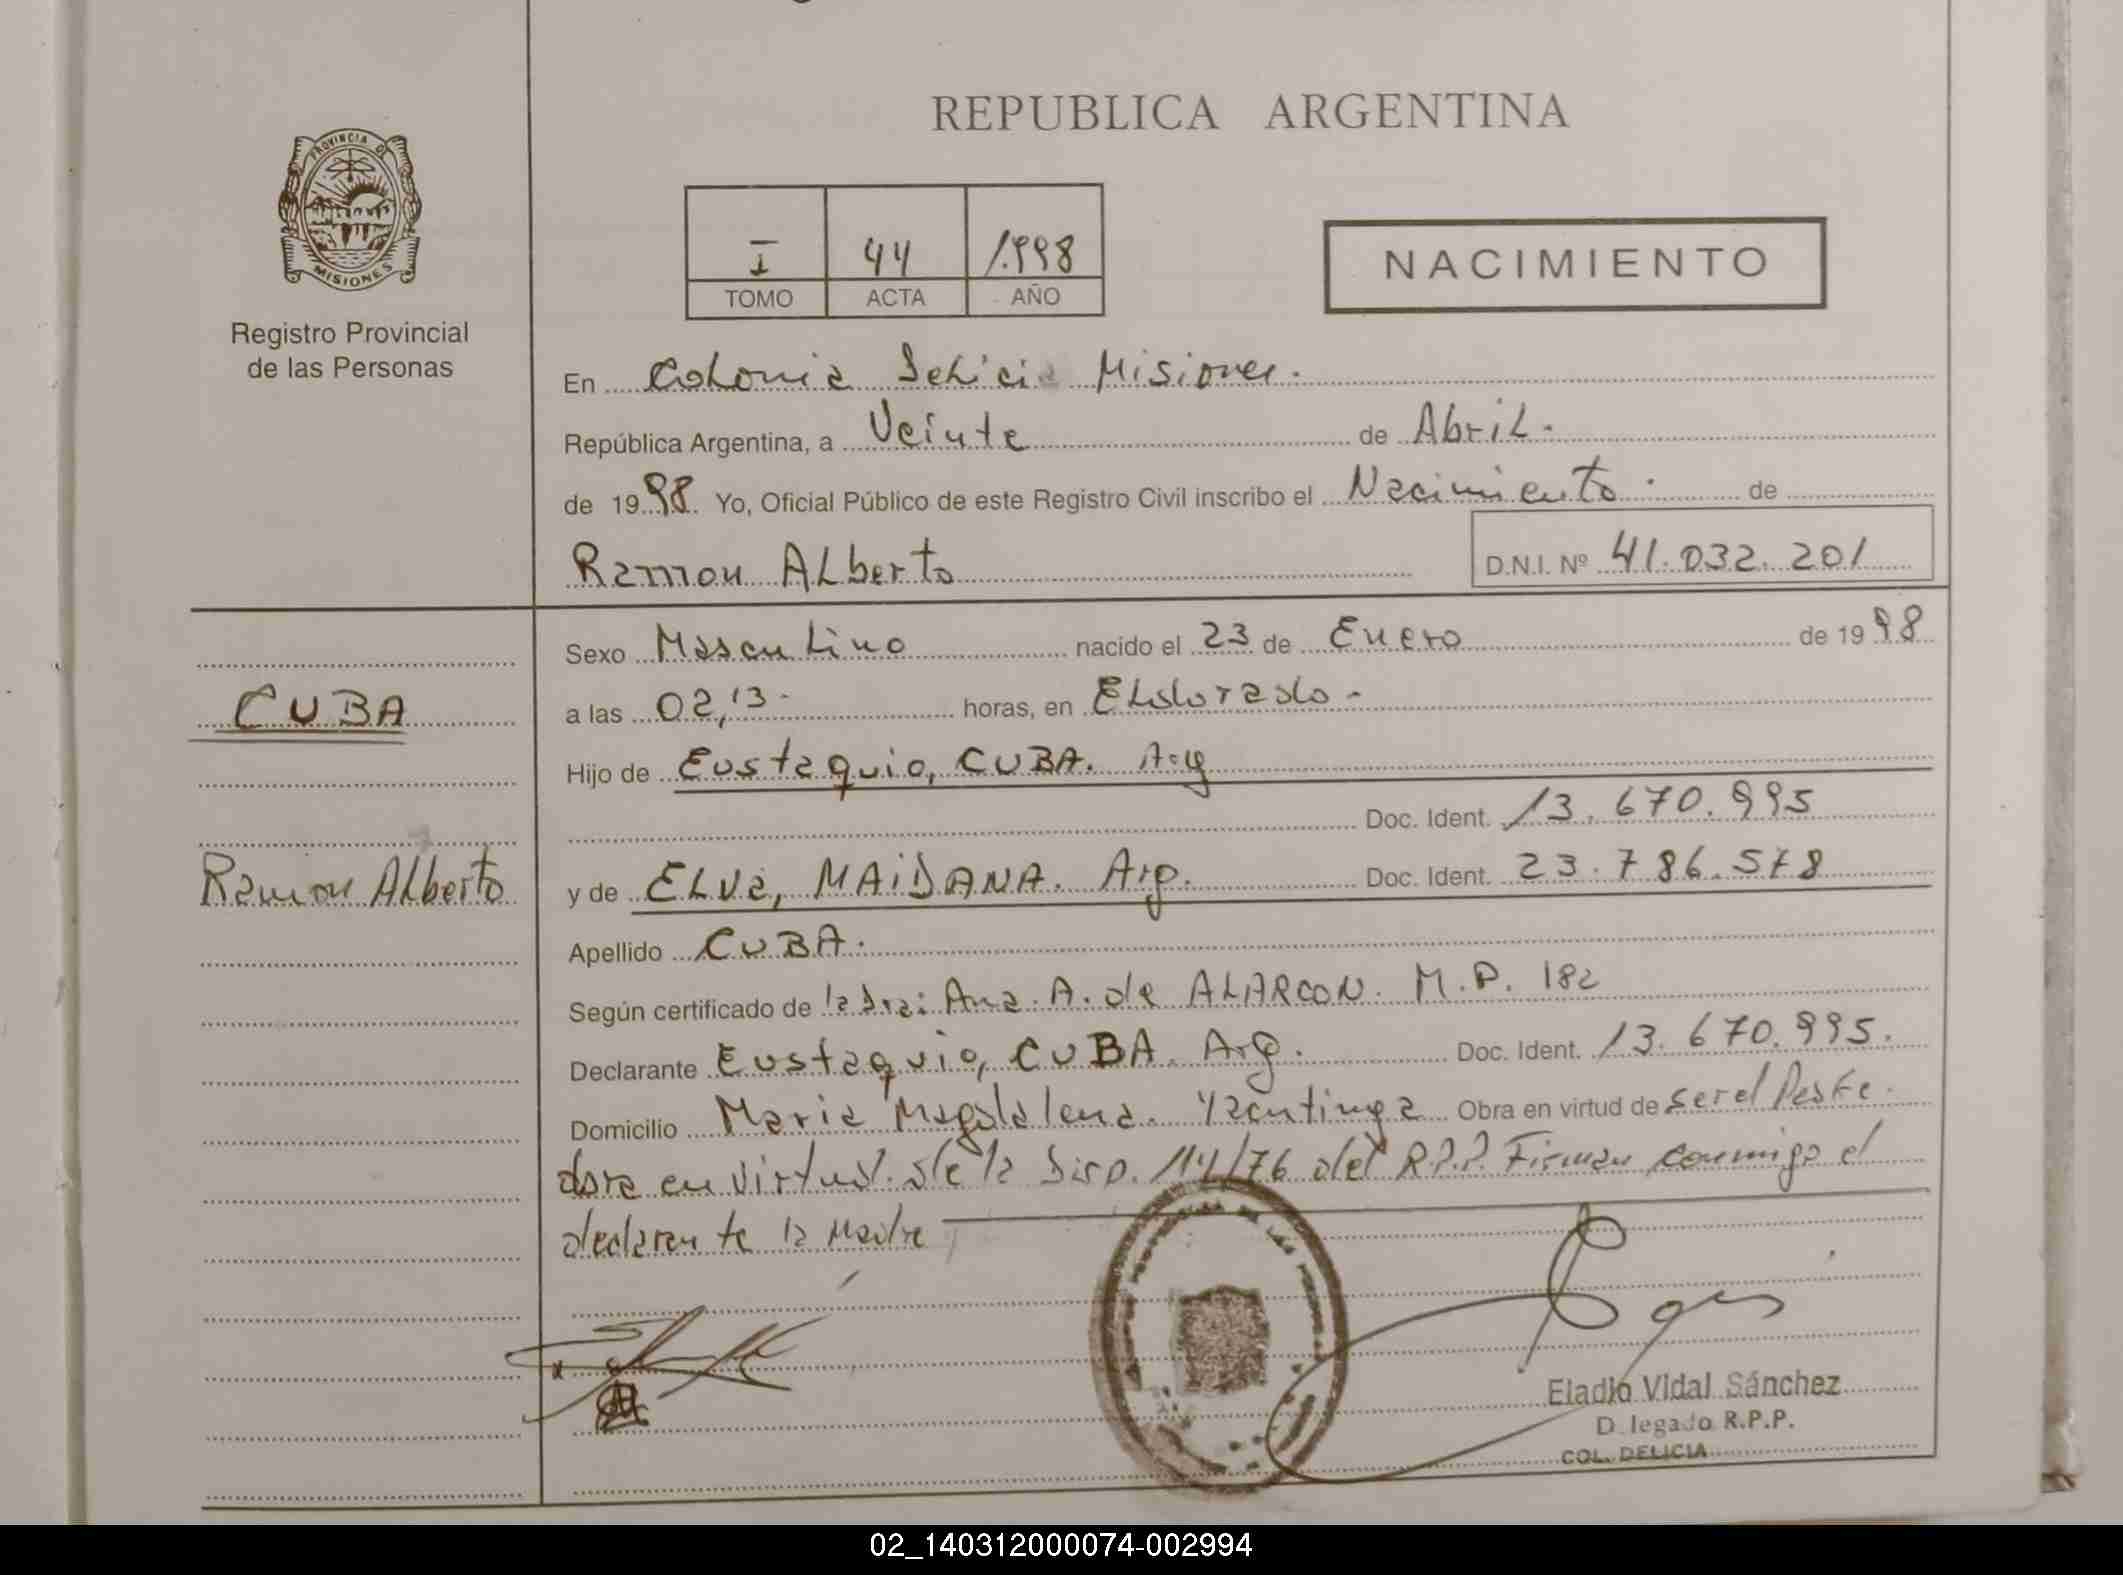 REPUBLICA ARGENTINA
PROVINCIA DE
MISIONES
Registro Provincial
de las Personas
I 44 1.998
TOMO ACTA AÑO
NACIMIENTO
En Colonia Delicia Misiones.
República Argentina, a Veinte de Abril.
de 1998. Yo, Oficial Público de este Registro Civil inscribo el Nacimiento. de
Ramon Alberto D.N.I. Nº 41.032.201
Sexo Masculino nacido el 23 de Enero de 1998
CUBA
a las 02,13- horas, en Eldorado-
Hijo de Eustaquio, CUBA. Arg
Doc. Ident. 13.670.995
Ramon Alberto
y de ELVa, MAiDANA. Arg. Doc. Ident. 23.786.578
Apellido CUBA.
Según certificado de la Dra: Ana. A. de ALARCON. M.P. 182
Declarante Eustaquio, CUBA. Arg. Doc. Ident. 13.670.995.
Domicilio Maria Magdalena. Yzantinga Obra en virtud de ser el Peste.
dora en virtud. de la Disp. 114/76 del R.P.P. Firman conmigo el
declarante la Madre
Eladio Vidal Sánchez
D legado R.P.P.
COL. DELICIA
02_140312000074-002994